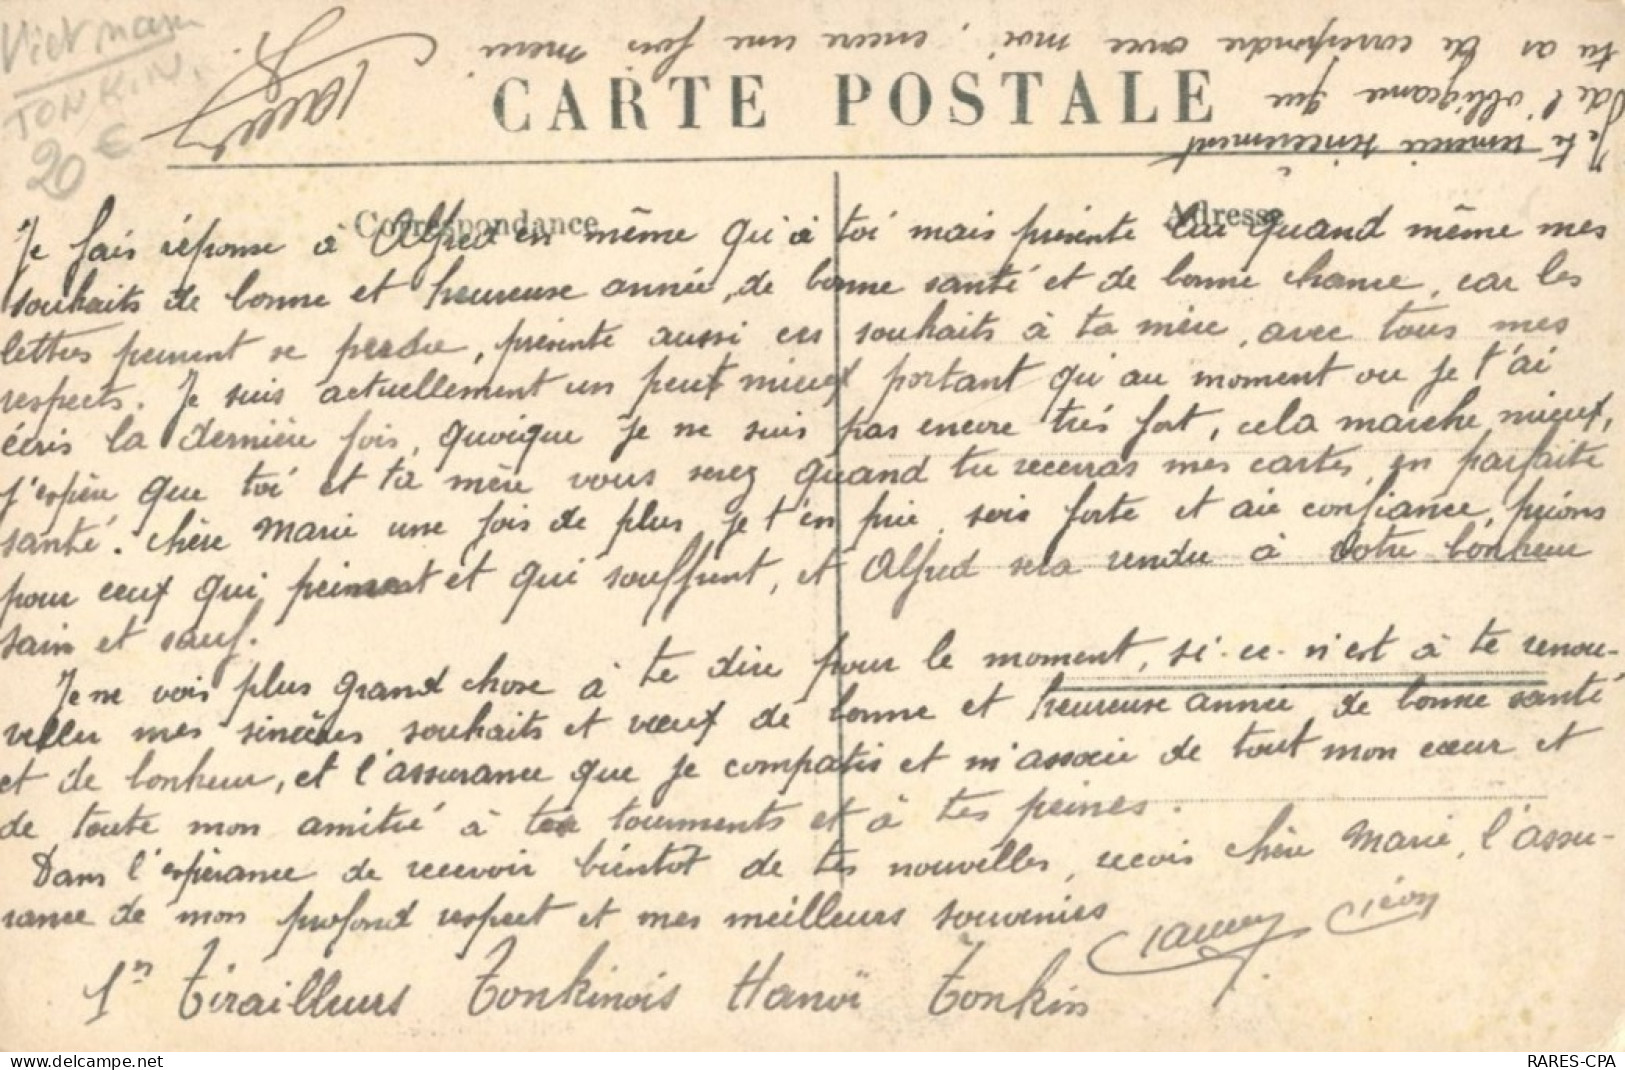 Viet nam
TONKIN.
20 €
CARTE POSTALE
Je te remercie sincèrement
de l'obligeance que
tu as de correspondre avec moi, encore une fois merci
Correspondance
Adresse
Je fais réponse à Alfred en même qu'à toi mais présente lui quand même mes
souhaits de bonne et heureuse année, de bonne santé et de bonne chance, car les
lettres peuvent se perdre, présente aussi ces souhaits à ta mère, avec tous mes
respects. Je suis actuellement un peut mieux portant qu'au moment ou je t'ai
écris la dernière fois, quoique je ne suis pas encore très fort, cela marche mieux,
j'espère que toi et ta mère vous serez quand tu recevras mes cartes, en parfaite
santé. chère Marie une fois de plus je t'en prie, sois forte et aie confiance, prions
pour ceux qui peinent et qui souffrent, et Alfred sera rendu à votre bonheur
sain et sauf.
Je ne vois plus grand chose à te dire pour le moment, si-ce-n'est à te renou-
veller mes sincères souhaits et vœux de bonne et heureuse année de bonne santé
et de bonheur, et l'assurance que je compatis et m'associe de tout mon cœur et
de toute mon amitié à tes tourments et à tes peines.
Dans l'espérance de recevoir bientôt de tes nouvelles, recois chère Marie, l'assu-
rance de mon profond respect et mes meilleurs souvenirs
1er Tirailleurs Tonkinois Hanoï Tonkin
www.delcampe.net
RARES-CPA